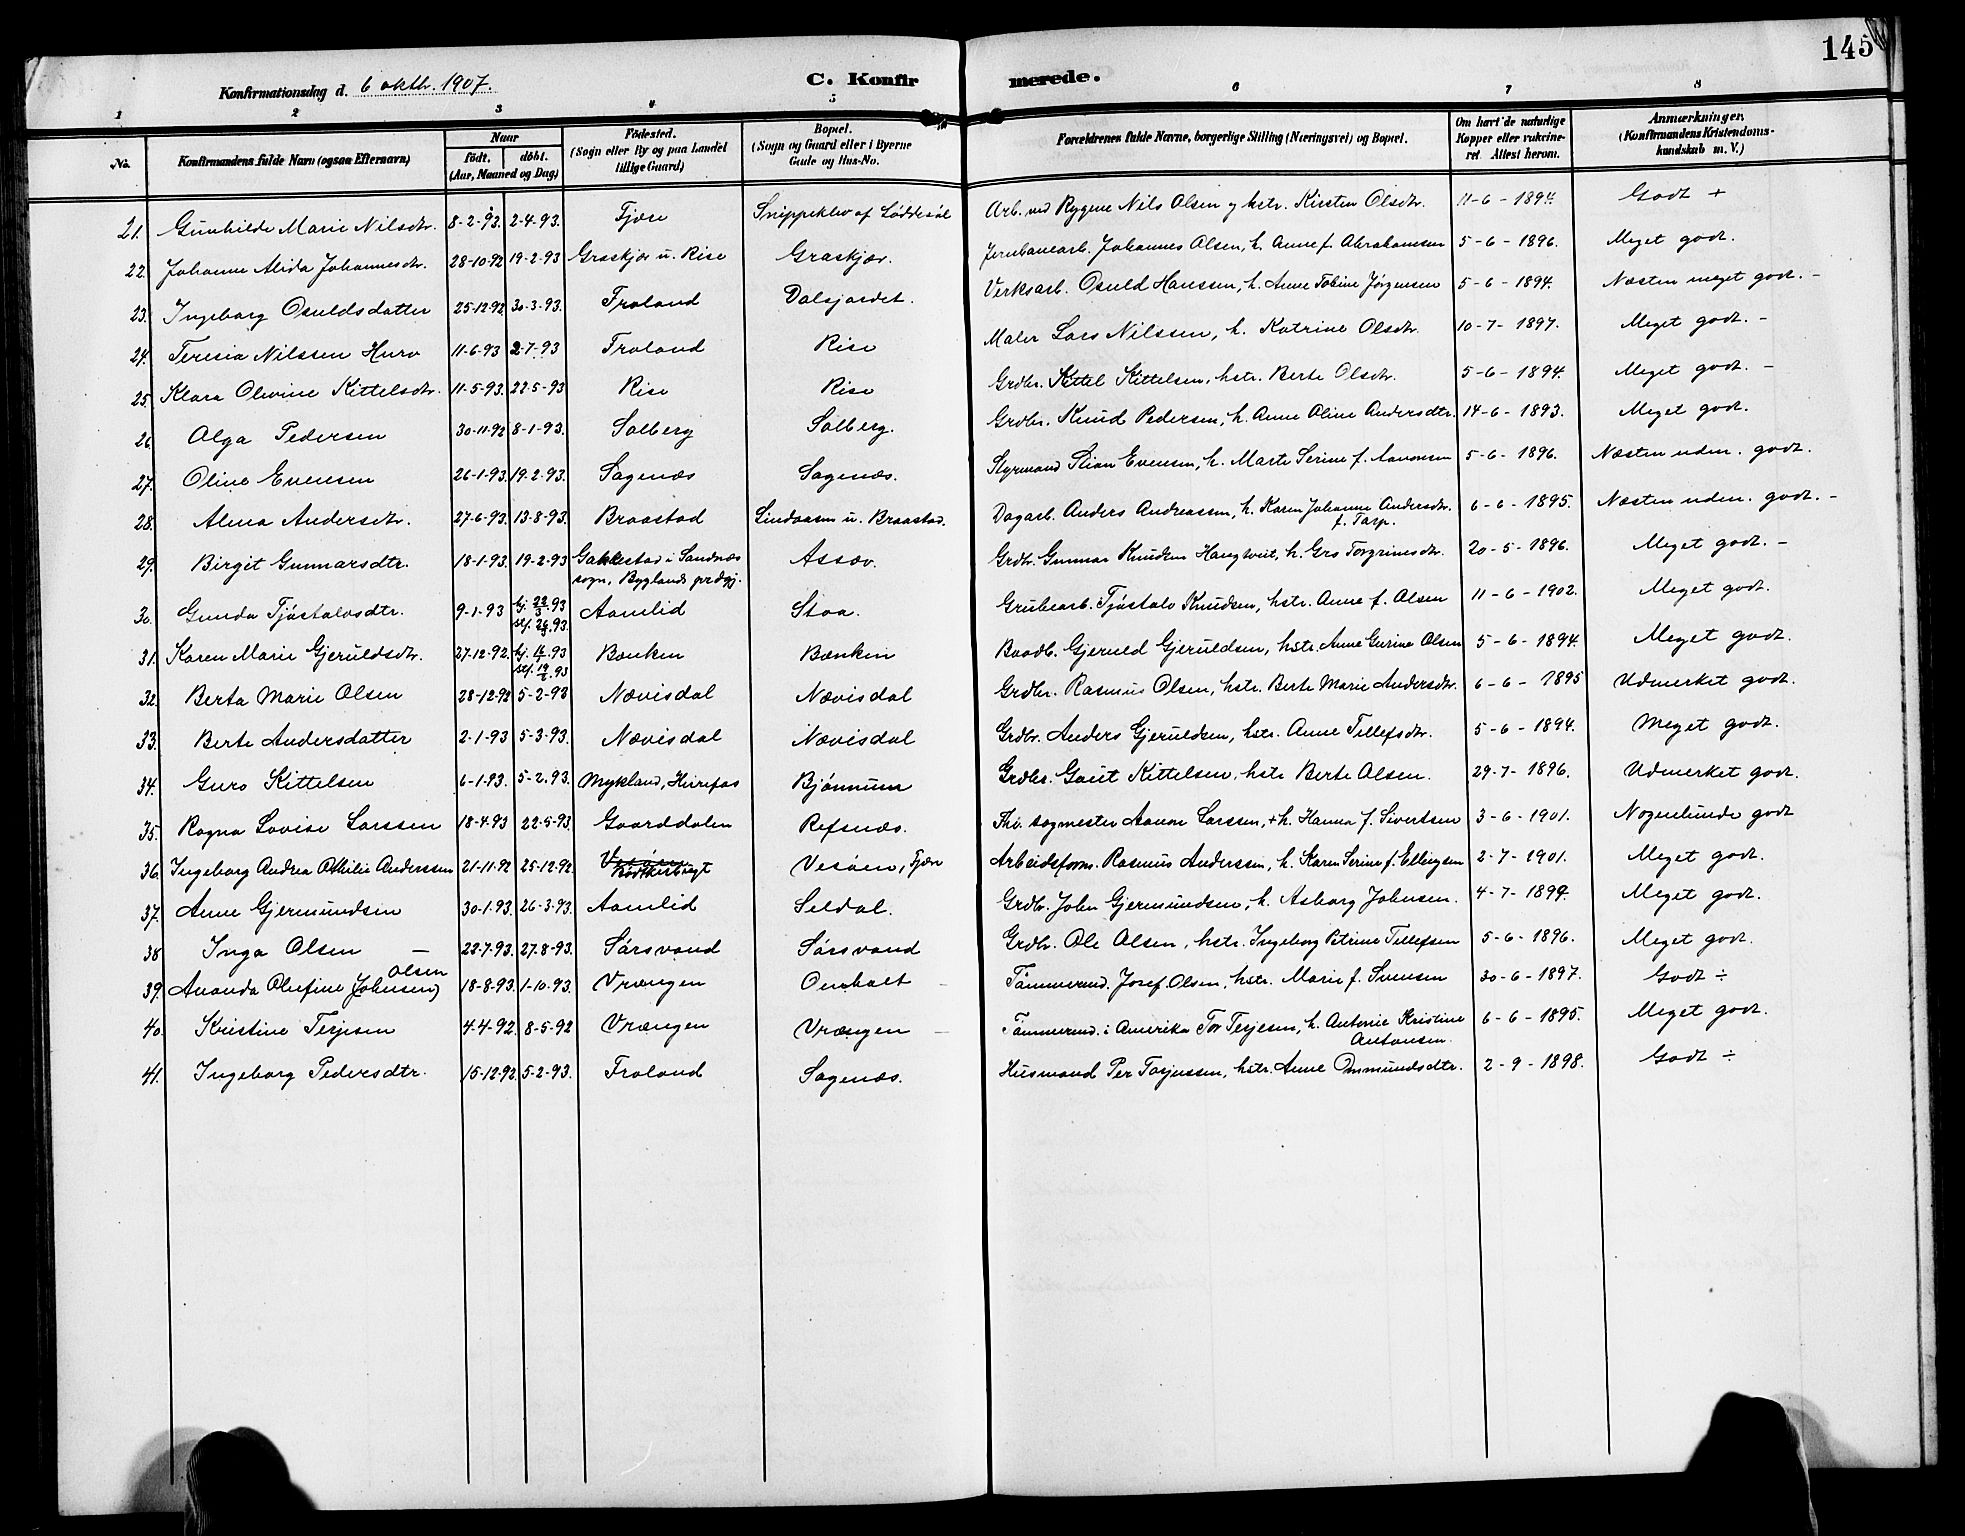 145
Konfirmationsdag d. 6 oktbr. 1907.
C. Konfirmerede.
1 2 3 4 5 6 7 8
No. | Konfirmandens fulde Navn (ogsaa Efternavn) | Naar født, døbt. (Aar, Maaned og Dag) | Fødested. (Sogn eller By og paa Landet tillige Gaard) | Bopæl. (Sogn og Gaard eller i Byerne Gade og Hus-No. | Forældrenes fulde Navne, borgerlige Stilling (Næringsvei) og Bopæl. | Om havt de naturlige Kopper eller vaccineret. Attest herom. | Anmærkninger. (Konfirmandens Kristendomskundskab m. V.)
21. Gunhilde Marie Nilsdtr. 8-2-93. 2-4-93. Fjære Snippeklev af Løddesøl Arb. ved Rygene Nils Olsen og hstr. Kirsten Olsdtr. 11-6-1894. Godt +
22. Johanne Alida Johannesdtr. 28-10-92 19-2-93 Graskjær u. Rise Graskjær. Jernbanearb. Johannes Olsen, h. Anne f. Abrahamsen 5-6-1896. Meget godt.
23. Ingeborg Osuldsdatter 25-12-92 30-3-93. Froland Dalsjordet. Verksarb. Osuld Hanssen, h. Anne Tobine Jørgensen 5-6-1894. Næsten meget godt. -
24. Teresia Nilssen Hurv 11-6-93 2-7-93 Froland Rise Maler Lars Nilssen, h. Katrine Olsdtr. 10-7-1897. Meget godt. -
25. Klara Olivine Kittelsdtr. 11-5-93. 22-5-93 Rise Rise Grdbr. Kittel Kittelsen, hstr. Berte Olsdtr. 5-6-1894. Meget godt. -
26. Olga Pedersen 30-11-92 8-1-93. Solberg Solberg. Grdbr. Knud Pedersen, h. Anne Oline Andersdtr. 14-6-1893. Meget godt.
27. Oline Evensen 26-1-93. 19-2-93. Sagenæs Sagenæs. Styrmand Stian Evensen, h. Marte Serine f. Aanonsen 5-6-1896. Næsten udm. godt.
28. Alma Andersdtr. 27-6-93. 13-8-93. Braastad Lindaasen u. Braastad. Dagarb. Anders Andreassen, h. Karen Johanne Andersdtr. f. Tarp. 6-6-1895. Næsten uden. godt. -
29. Birgit Gunnarsdtr. 18-1-93. 19-2-93 Gakkestad i Sandnæs sogn, Byglands prdgj. Assæv. Grdbr. Gunnar Knudsen Haugtveit, h. Gro Torgrimsdtr. 20-5-1896. Meget godt. -
30. Gunda Tjøstalvsdtr. 9-1-93 hj. 22/3 93 stf. 26/3 93. Aamlid Stoa. Grubearb. Tjøstalv Knudsen, hstr. Anne f. Olsen 11-6-1902. Meget godt.
31. Karen Marie Gjeruldsdtr. 27-12-92. hj. 93 stf. 93 Bænken Bænken Baadb. Gjeruld Gjeruldsen, hstr. Anne Gurine Olsen 5-6-1894. Meget godt.
32. Berta Marie Olsen 28-12-92 5-2-93 Nævisdal Nævisdal Grdbr. Rasmus Olsen, hstr. Berte Marie Andersdtr. 6-6-1895 Udmerket godt.
33. Berte Andersdatter 2-1-93 5-3-93. Nævisdal Nævisdal Grdbr. Anders Gjeruldsen, hstr. Anne Tellefsdtr. 5-6-1894. Meget godt.
34. Guro Kittelsen 6-1-93. 5-2-93. Mykland, Heirefos Bjønnum Grdbr. Gaut Kittelsen, hstr. Berte Olsen. 29-7-1896. Udmerket godt.
35. Ragna Lovise Larssen 18-4-93 22-5-93. Gaarddalen Refsnæs. Fhv. sagmester Aanon Larssen, + h. Hanna f. Sivertsen 3-6-1901. Nogenlunde godt
36. Ingeborg Andrea Othilie Anderssen 21-11-92 25-12-92. Vesøen, Fjære Arbeidsform. Rasmus Anderssen, h. Karen Serine f. Ellingsen 2-7-1901. Meget godt.
37. Anne Gjermundsen 30-1-93. 26-3-93. Aamlid Seldal. Grdbr. John Gjermundsen, h. Asborg Johnsen. 4-7-1899. Meget godt.
38 Inga Olsen — 22-7-93. 27-8-93. Sørsvand Sørsvand Grdbr. Ole Olsen, hstr. Ingeborg Petrine Tellefsen 5-6-1896. Meget godt.
39. Ananda Olufine (Johnsen) Olsen 18-8-93. 1-10-93. Vrængen Omholt - Tømmermd. Josef Olsen, hstr. Marie f. Svensen 30-6-1897. Godt ÷
40. Kristine Terjesen 4-4-92. 8-5-92 Vrængen Vrængen - Tømmermd. i Amerika Tor Terjesen, h. Antonie Kristine Antonsen. 6-6-1895. Meget godt.
41. Ingeborg Pedersdtr. 15-12-92. 5-2-93. Froland Sagenæs. Husmand Per Torjussen, hstr. Anne Ommundsdtr. 2-9-1898. Godt ÷